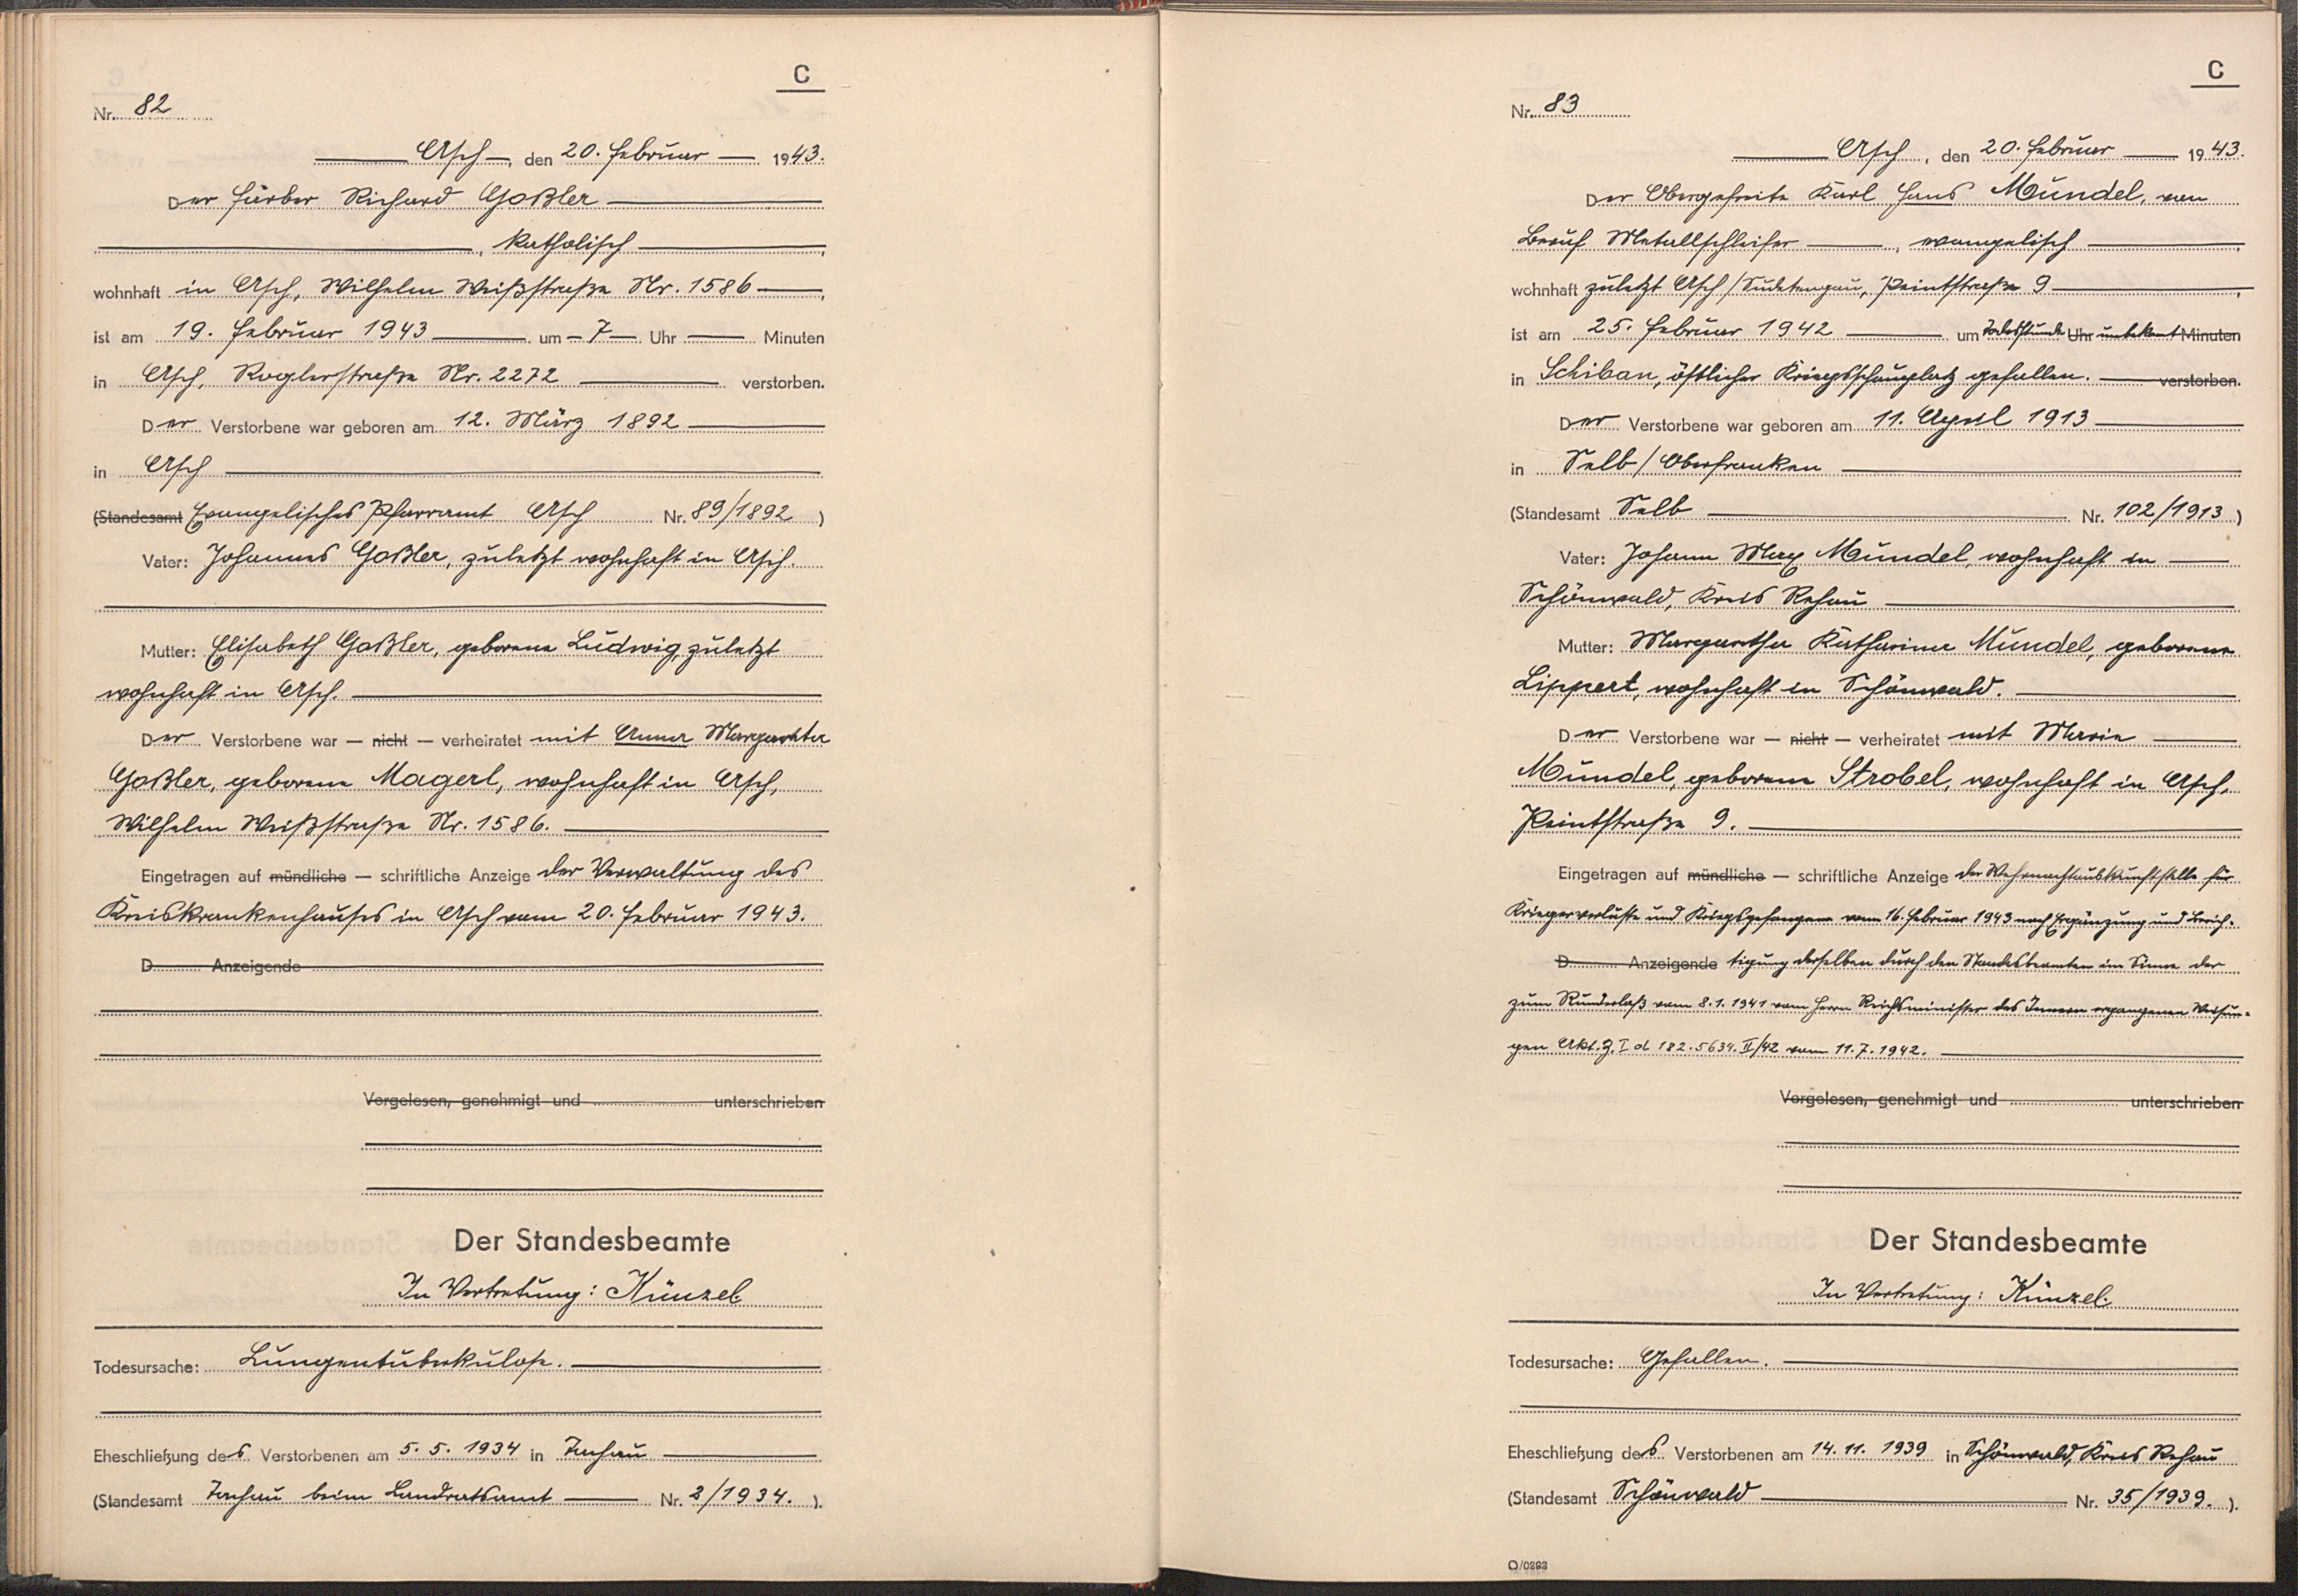 C
Nr. 82
Asch, den 20. Februar 1943.
Der Färber Richard Goßler
, katholisch
wohnhaft in Asch, Wilhelm Weißstraße Nr. 1586,
ist am 19. Februar 1943 um 7 Uhr Minuten
in Asch, Roglerstraße Nr. 2272 verstorben.
Der Verstorbene war geboren am 12. März 1892
in Asch
(Standesamt Evangelisches Pfarramt Asch Nr. 89/1892)
Vater: Johannes Goßler, zuletzt wohnhaft in Asch.
Mutter: Elisabeth Goßler, geborene Ludwig, zuletzt
wohnhaft in Asch.
Der Verstorbene war — nicht — verheiratet mit Anna Margareta
Goßler, geborene Magerl, wohnhaft in Asch,
Wilhelm Weißstraße Nr. 1586.
Eingetragen auf mündliche — schriftliche Anzeige der Verwaltung des
Kreiskrankenhauses in Asch vom 20. Februar 1943.
D Anzeigende
Vorgelesen, genehmigt und unterschrieben
Der Standesbeamte
In Vertretung: Künzel
Todesursache: Lungentuberkulose.
Eheschließung des Verstorbenen am 5. 5. 1934 in Tachau
(Standesamt Tachau beim Landratsamt Nr. 2/1934.).
C
Nr. 83
Asch, den 20. Februar 1943.
Der Obergefreite Karl Hans Mündel, von
Beruf Metallschleifer, evangelisch,
wohnhaft zuletzt Asch/Sudetengau, Peintstraße 9,
ist am 25. Februar 1942 um Todesstunde Uhr unbekant Minuten
in Schiban, östlicher Kriegsschauplatz gefallen. verstorben.
Der Verstorbene war geboren am 11. April 1913
in Selb/Oberfranken
(Standesamt Selb Nr. 102/1913)
Vater: Johann Max Mündel, wohnhaft in
Schönwald, Kreis Rehau
Mutter: Margaretha Katharina Mündel, geborene
Lippert, wohnhaft in Schönwald.
Der Verstorbene war — nicht — verheiratet mit Maria
Mündel, geborene Strobel, wohnhaft in Asch,
Peintstraße 9.
Eingetragen auf mündliche — schriftliche Anzeige der Wehrmachtauskunftstelle für
Kriegerverluste und Kriegsgefangene vom 16. Februar 1943 nach Ergänzung und Berich-
D Anzeigende tigung derselben durch den Standesbeamten im Sinne der
zum Runderlaß vom 8.1.1941 vom Herrn Reichsminister des Innern ergangenen Weisun-
gen Akt.Z. I d 182.5634.II/42 vom 11.7.1942.
Vorgelesen, genehmigt und unterschrieben
Der Standesbeamte
In Vertretung: Künzel.
Todesursache: Gefallen.
Eheschließung des Verstorbenen am 14. 11. 1939 in Schönwald, Kreis Rehau
(Standesamt Schönwald Nr. 35/1939.).